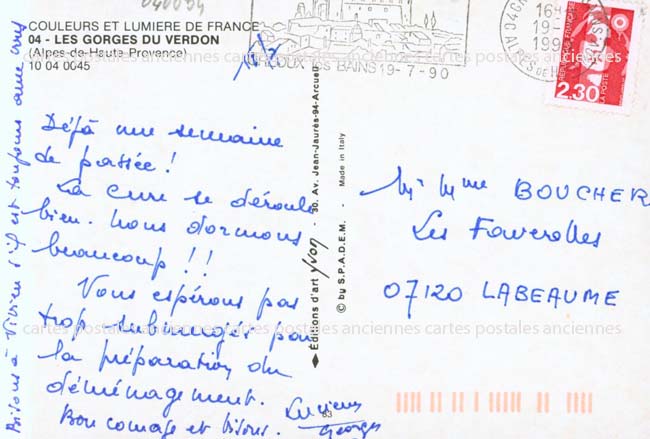 COULEURS ET LUMIERE DE FRANCE
04 - LES GORGES DU VERDON
(Alpes-de-Haute-Provence)
10 04 0045
OUX LES BAINS 19-7-90
16
19-
199
2,30
LA POSTE
Déjà une semaine
de passée !
La cure se déroule
bien. Nous dormons
beaucoup !!
Vous espérons pas
trop submergés par
la préparation du
déménagement.
Bon courage et bisous. Lucienne
Georges
Bisous à Vivien s'il est toujours avec vous
Editions d'art yvon - 30, Av. Jean-Jaurès-94-Arcueil
© by S.P.A.D.E.M. - Made in Italy
83
Mr Mme BOUCHER
Les Faverolles
07120 LABEAUME
cartes postales anciennes cartes postales anciennes cartes postales anciennes